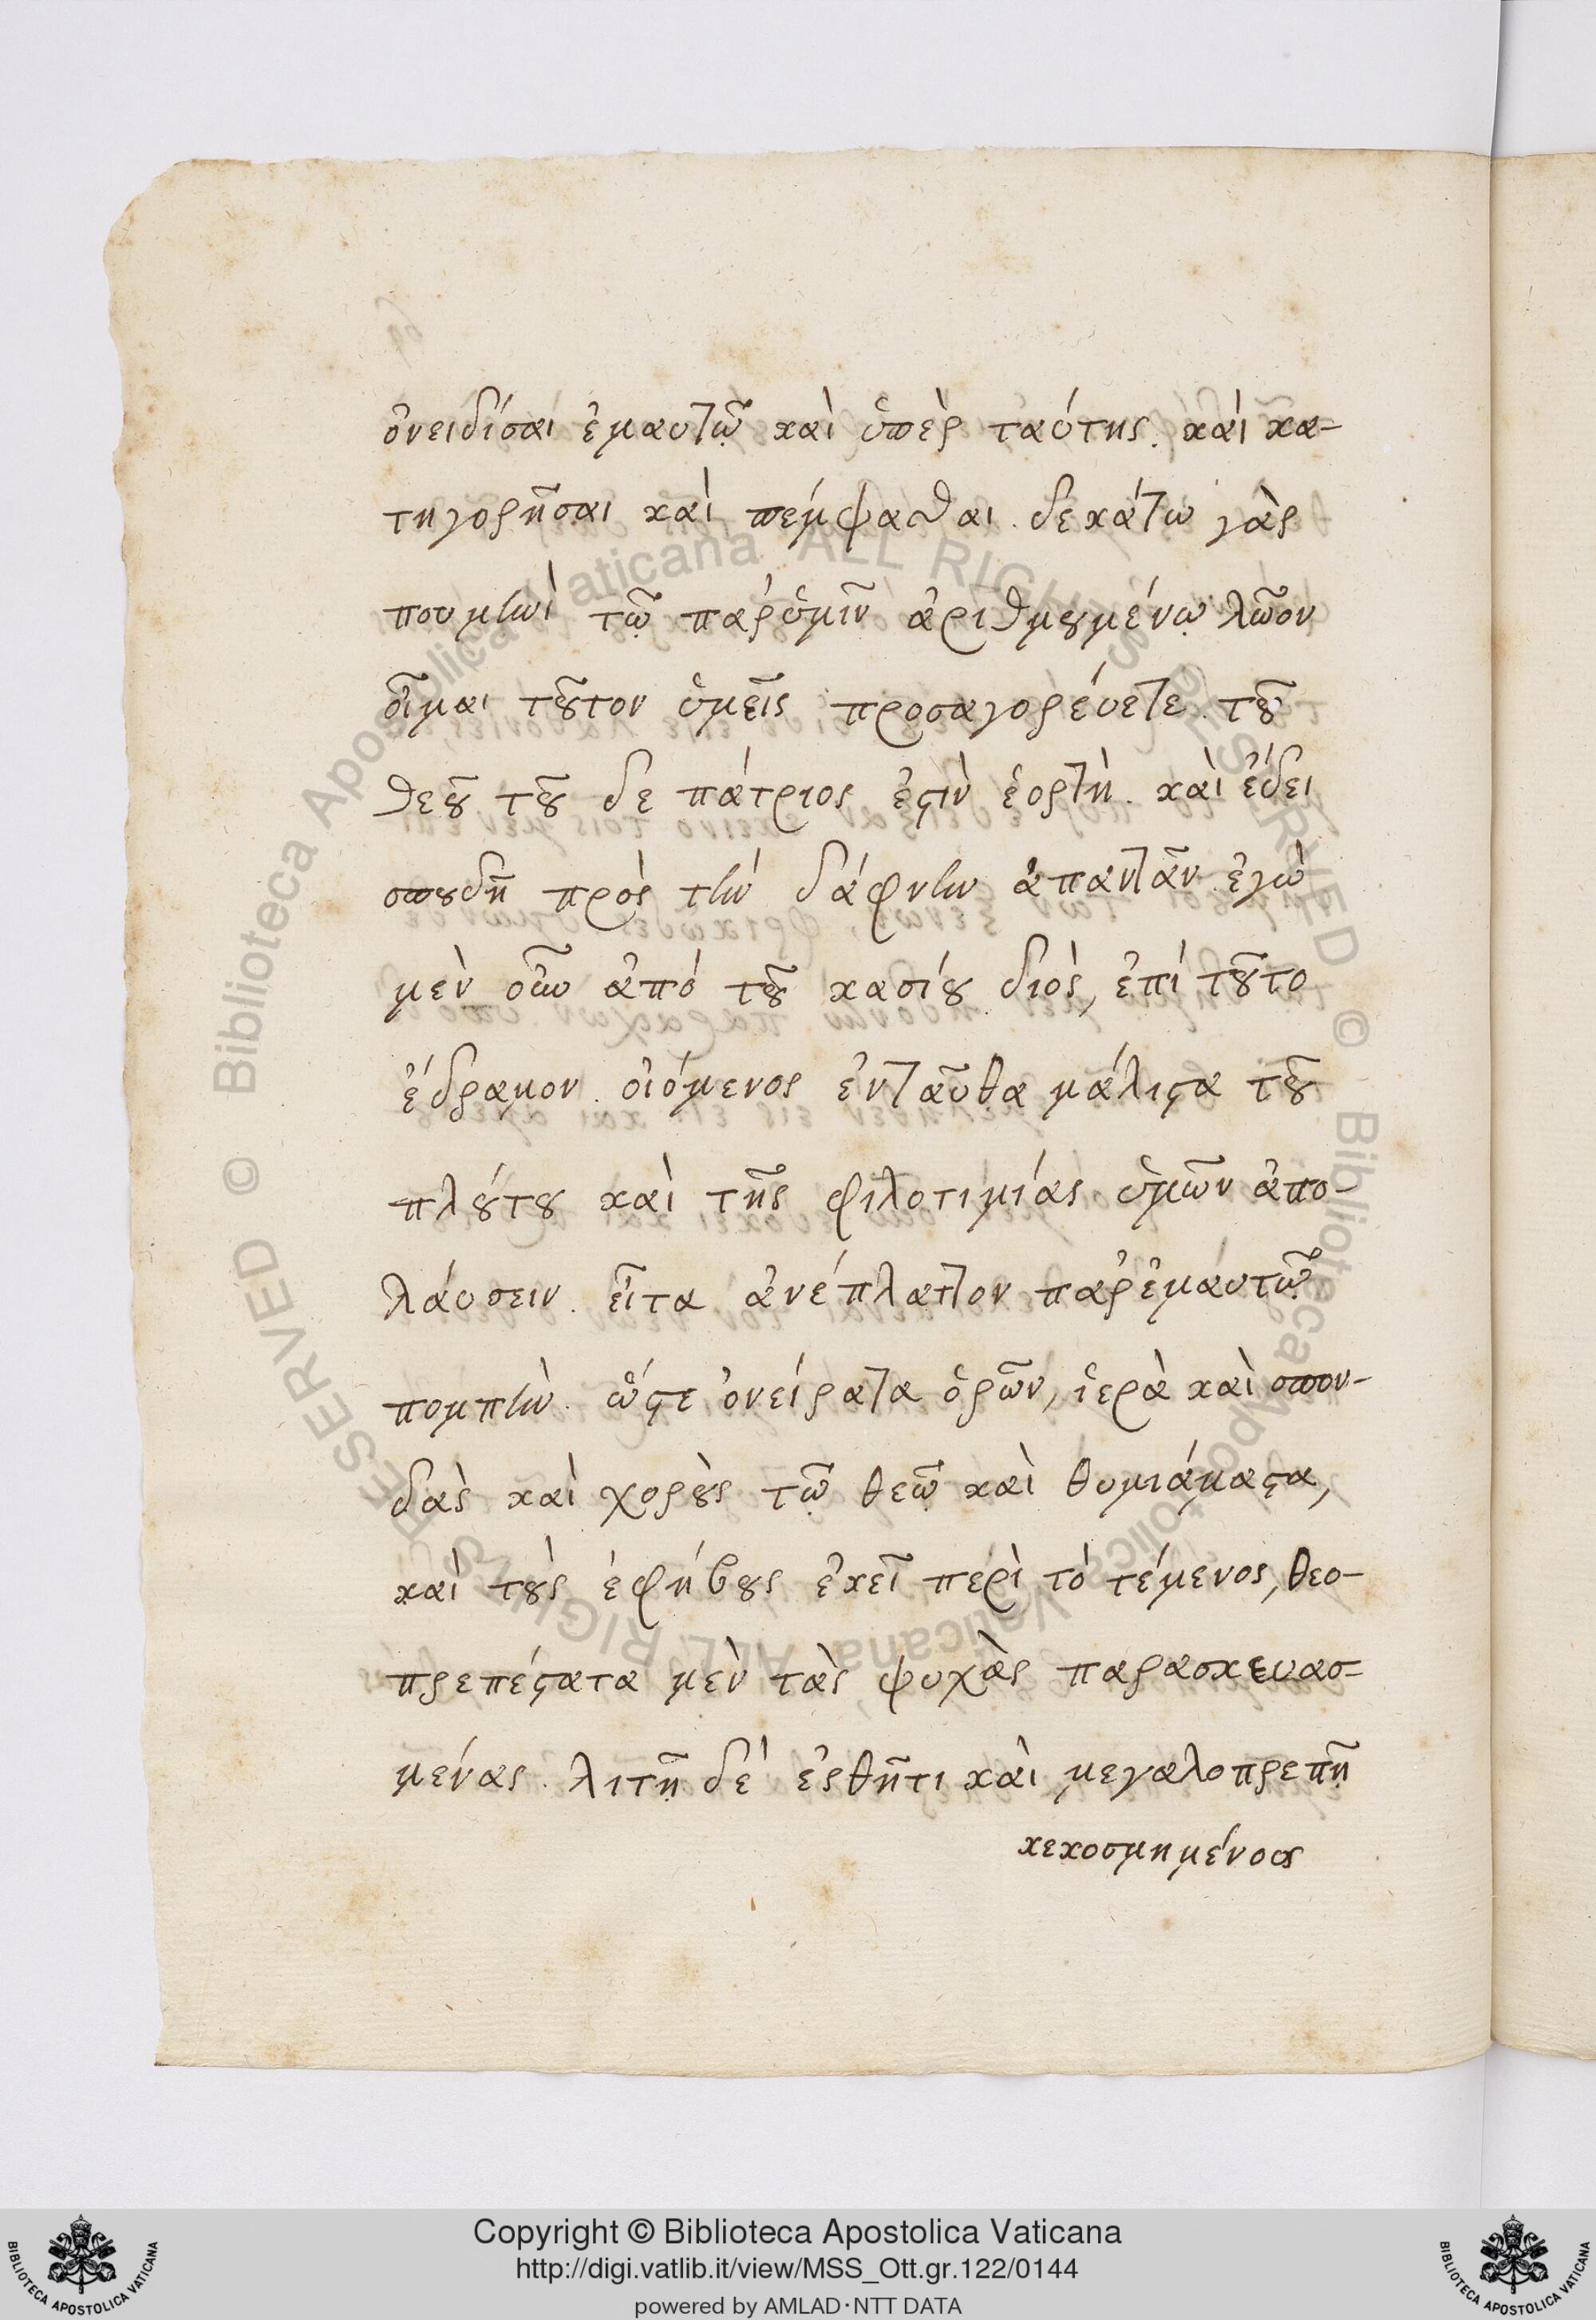 ὀνειδίσαι ἐμαυτῷ καὶ ὑπὲρ ταύτης. καὶ κα-
τηγορῆσαι καὶ πέμψασθαι. δεκάτω γὰρ
που μηνὶ τῷ παρ' ὑμῖν ἀριθμουμένῳ λῶον
οἶμαι τοῦτον ὑμεῖς προσαγορεύετε. τοῦ
θεοῦ τοῦ δε πάτριος ἐστὶν ἑορτὴ. καὶ ἔδει
σπουδῆ πρὸς τὴν δάφνην ἀπαντᾶν. ἐγὼ
μὲν οὖν ἀπὸ τοῦ κασίου διὸς, ἐπὶ τοῦτο
ἔδραμον. οἰόμενος ἐνταῦθα μάλιστα τοῦ
πλούτου καὶ τῆς φιλοτιμίας ὑμῶν ἀπο-
λάυσειν. εἶτα ἀνέπλαττον παρ' ἐμαυτῷ
πομπὴν. ὥστε ὀνείρατα ὁρῶν, ἱερὰ καὶ σπον-
δὰς καὶ χοροὺς τῷ θεῷ καὶ θυμιάματα,
καὶ τοὺς ἐφήβους ἐκεῖ περὶ τὸ τέμενος, θεο-
πρεπέστατα μὲν τὰς ψυχὰς παρασκευασ-
μένας. λιτῇ δὲ ἐσθῆτι καὶ μεγαλοπρεπῇ
κεκοσμημένος
Copyright © Biblioteca Apostolica Vaticana
http://digi.vatlib.it/view/MSS_Ott.gr.122/0144
powered by AMLAD·NTT DATA
BIBLIOTECA APOSTOLICA VATICANA
BIBLIOTECA APOSTOLICA VATICANA
© Biblioteca Apostolica Vaticana ALL RIGHTS RESERVED © Biblioteca Apostolica Vaticana ALL RIGHTS RESERVED